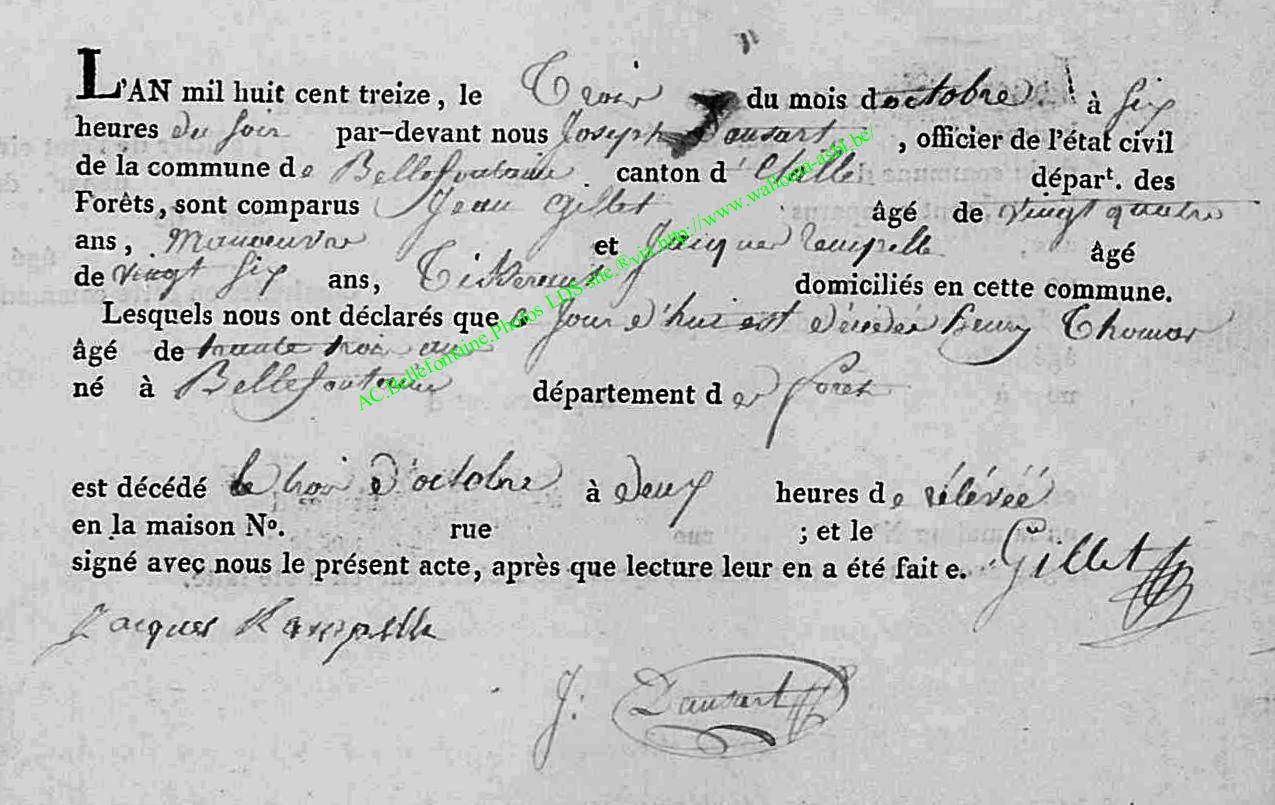 L'AN mil huit cent treize, le Trois du mois d'octobre à six
heures du soir par-devant nous Joseph Dausart, officier de l'état civil
de la commune de Bellefontaine canton d'Etalle départ. des
Forêts, sont comparus Jean Gillet âgé de vingt quatre
ans, Manoeuvre et Jacques âgé
de vingt six ans, Tisserant domiciliés en cette commune.
Lesquels nous ont déclarés que ce jour d'hui est décédé henry Thomas
âgé de trente trois ans
né à Bellefontaine département des forêts
est décédé le trois d'octobre à deux heures de rélévéé
en la maison Nº. rue ; et le
signé avec nous le présent acte, après que lecture leur en a été faite. Gillet
Jacques
J: Dausart
AC.Bellefontaine_Photos LDS site ®via http://www.wallonia-asbl.be/